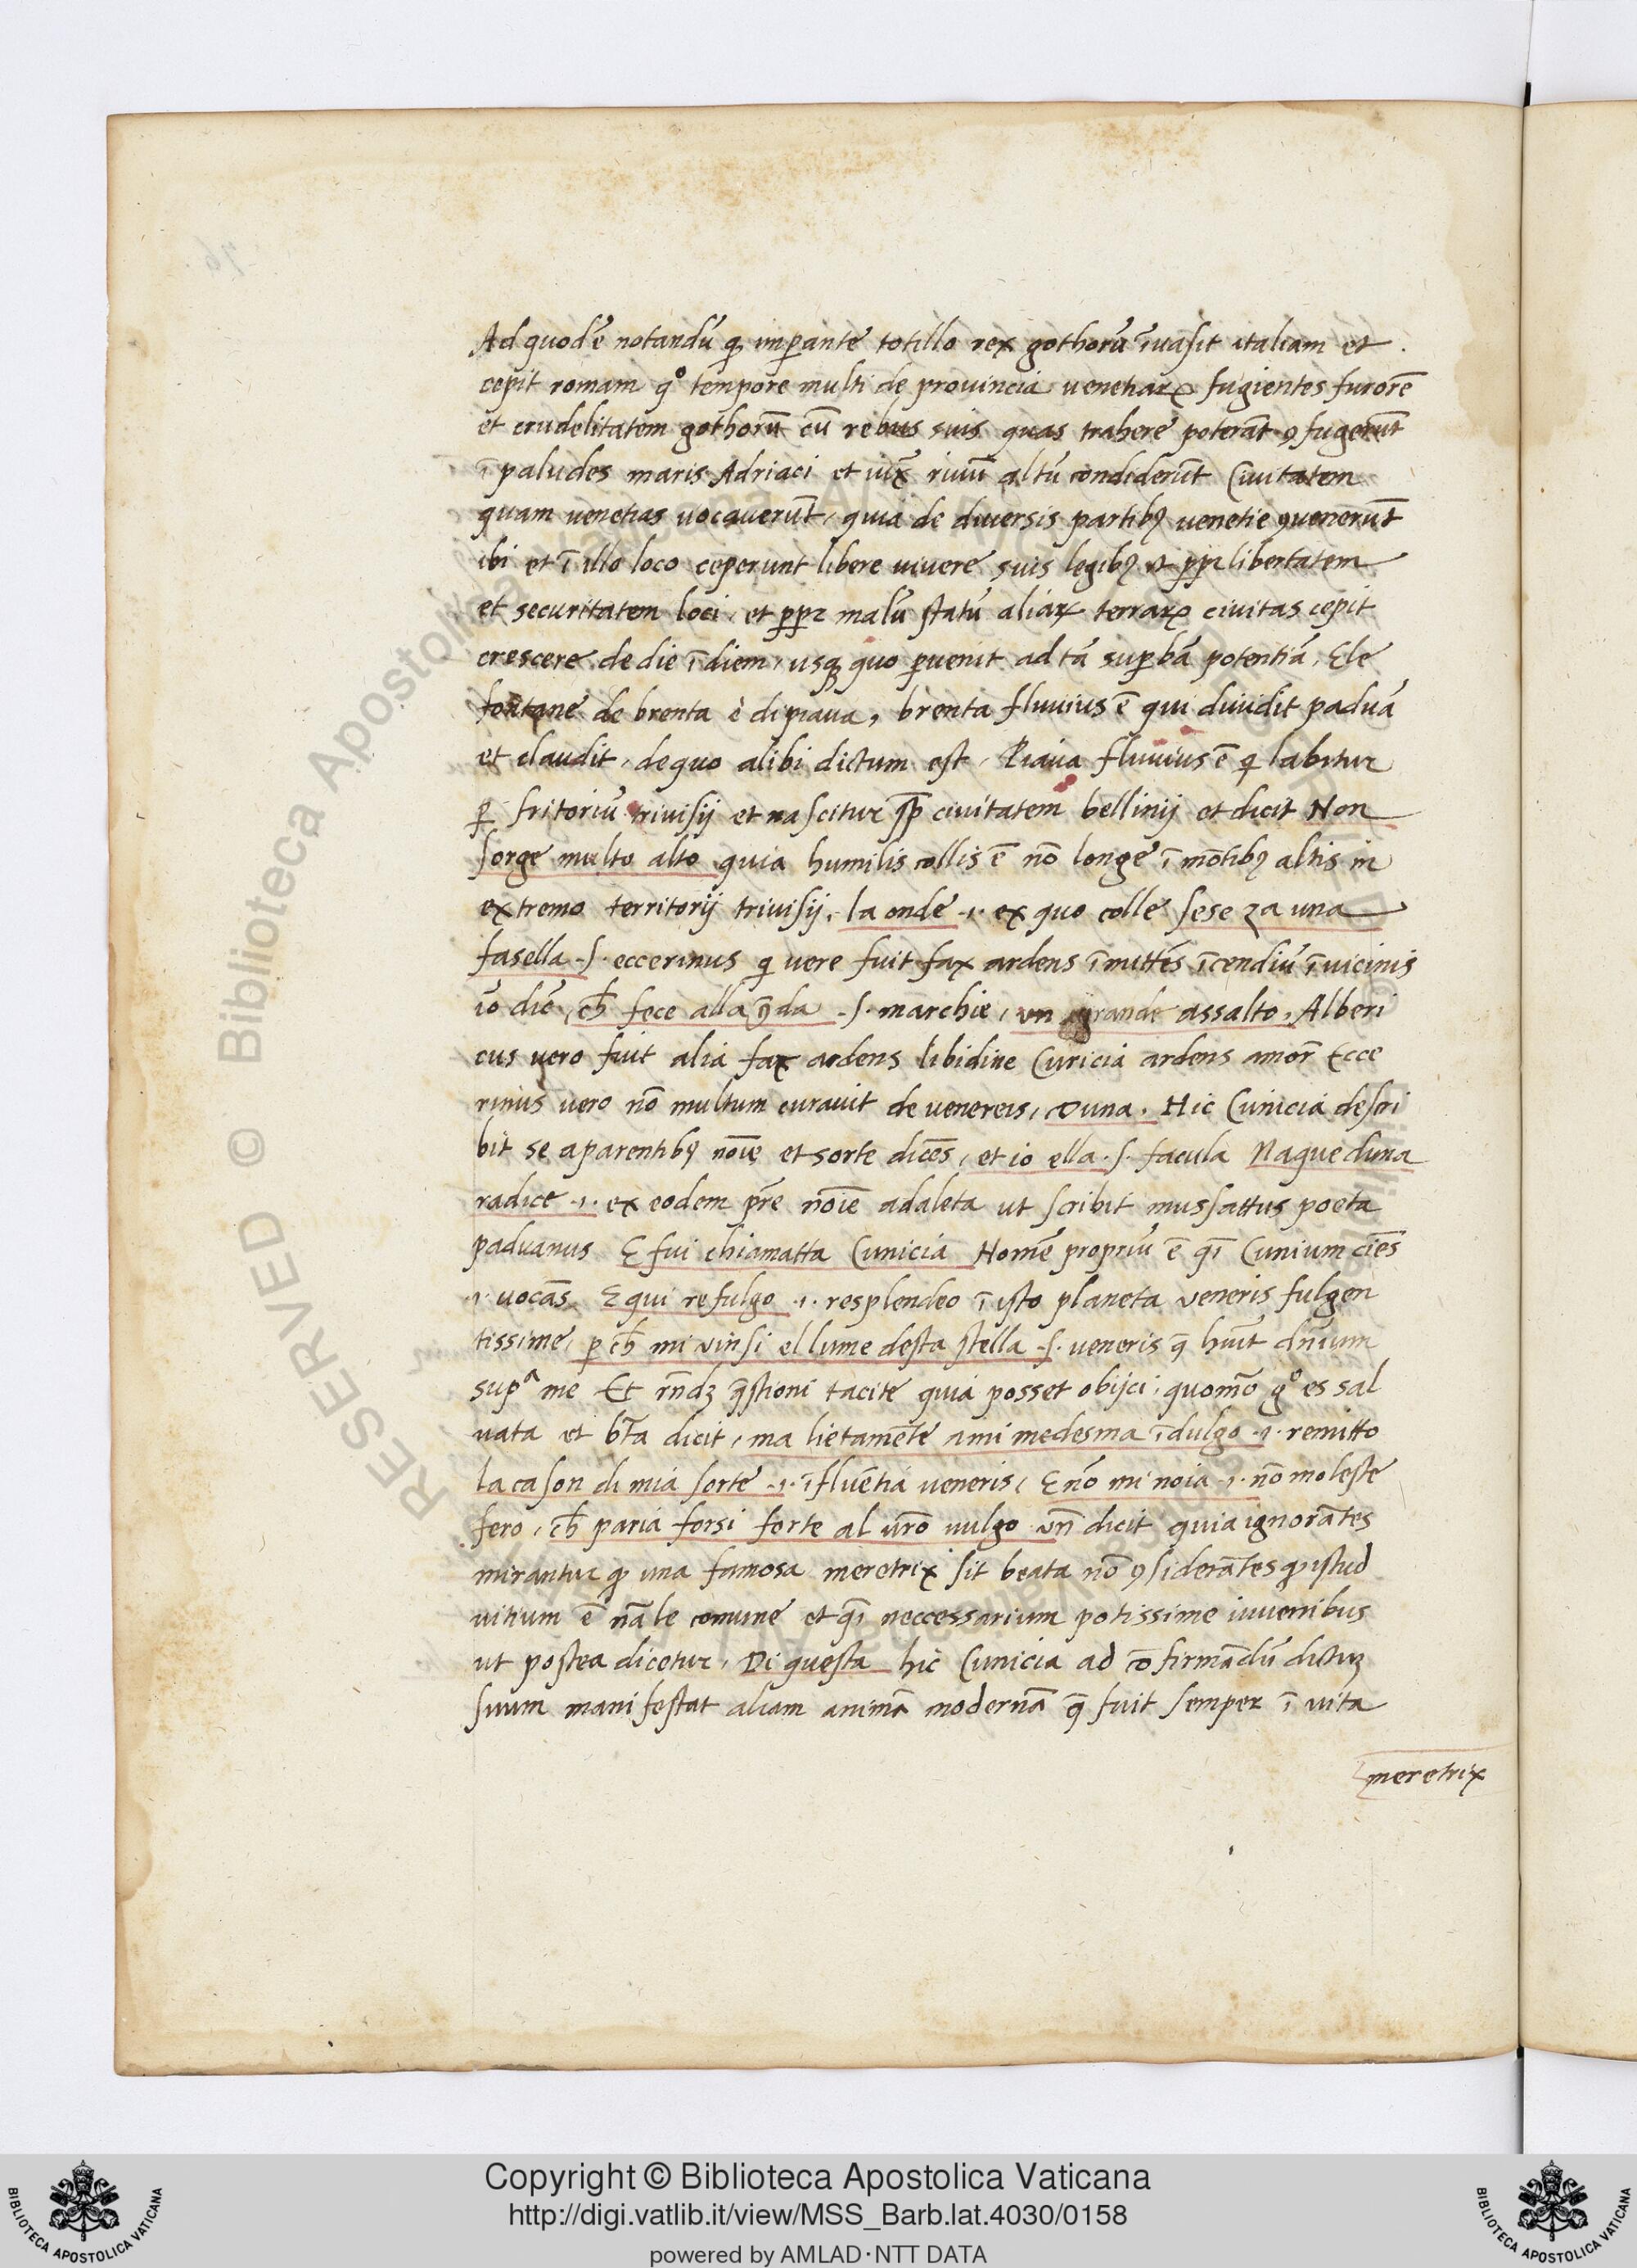 Ad quod ē notandū ꝙ imꝑante totillo rex gothorū ĩuasit italiam et
cepit romam qͦ tempore multi de prouincia venetiarꝝ fugientes furorē
et crudelitatem gothorū cū rebus suis quas trahere poterāt ꝯfugerūt
ĩ paludes maris Adriaci et iux̄ riuū altū condiderūt Ciuitatem
quam venetias vocauerūt, quia de diuersis partibꝰ venetie ꝯuenerūt
ibi et ĩ illo loco ceperunt libere viuere suis legibꝰ et ꝓpr libertatem
et securitatem loci, et ꝓpr malū statū aliarꝝ terrarꝝ ciuitas cepit
crescere de die ĩ diem, usqꝫ quo ꝑuenit ad tā suꝑbā potentiā, E le
fontane de brenta è di piaua, brenta fluuius ē qui diuidit paduā
et claudit, de quo alibi dictum est, Piaua fluuius ē qͥ labitur
ꝑ tritoriū triuisij et nascitur ꝓp ciuitatem bellinij et dicit Non
sorge multo alto quia humilis collis ē nō longe ĩ mōtibꝰ altis in
extremo territorij triuisij, la onde .i. ex quo colle sese za una
fasella .s. eccerinus qͥ vere fuit fax ardens ĩmittēs ĩcendiū ĩ vicinis
iō diē, ch̄ fece alla ꝯ̄da .s. marchie, un grande assalto, Alberi
cus vero fuit alia fax ardens libidine Cunicia ardens amor̄ Ecce
rinus vero nō multum curauit de venereis, Duna. Hic Cunicia descri
bit se a parentibꝰ noīe et sorte dicēs, et io ella .s. facula Naque duna
radice .i. ex eodem pr̄e noīe adaleta ut scribit mussattus poeta
paduanus E fui chiamatta Cunicia Nomē propriū ē qī Cunium ciēs
.i. vocās E qui refulgo .i. resplendeo ĩ isto planeta veneris fulgen
tissime, ꝑ ch̄ mi vinsi el lume desta stella .s. veneris q̄ huīt dn̄ium
supᵃ me Et rn̄dꝫ q̄stioni tacite quia posset obijci, quomō gͦ es sal
uata et bt̄a dicit, ma lietamēte a mi medesma ĩdulgo .i. remitto
la cason di mia sorte .i. ĩfluētia veneris, E nō mi noia .i. nō moleste
fero, ch̄ paria forsi forte al vr̄o vulgo vn̄ dicit quia ignorātes
mirantur ꝙ una famosa meretrix sit beata nō ꝯsiderātes ꝙ istud
vitium ē nāle comune et qī neccessarium potissime iuuenibus
ut postea dicetur, Di questa hic Cunicia ad cōfirmādū dictuꝫ
suum manifestat aliam animā modernā q̄ fuit semper ĩ vita
meretrix
Copyright © Biblioteca Apostolica Vaticana
http://digi.vatlib.it/view/MSS_Barb.lat.4030/0158
powered by AMLAD·NTT DATA